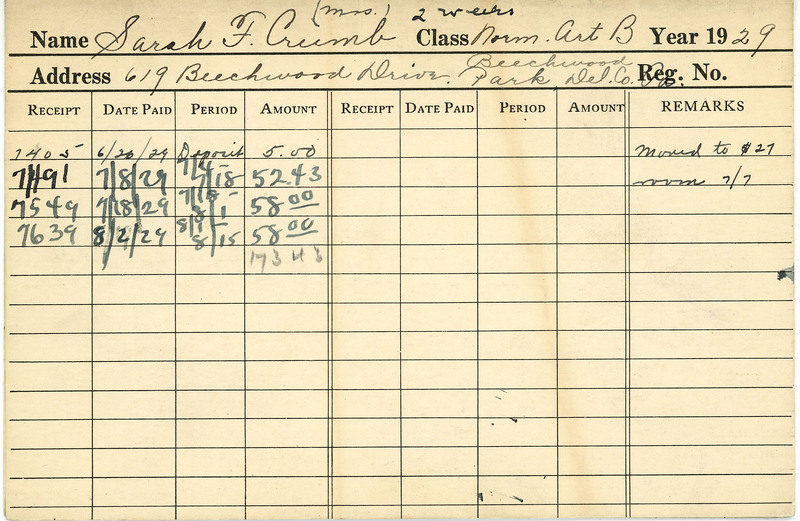 (Mrs.) 2 weeks
Name Sarah F. Crumb Class Norm. Art B Year 1929
Address 619 Beechwood Drive. Beechwood Park Del. Co. Pa. Reg. No.
RECEIPT DATE PAID PERIOD AMOUNT RECEIPT DATE PAID PERIOD AMOUNT REMARKS
7405 6/20/29 Deposit 5.00 Moved to $27
7491 7/8/29 7/4 7/18 52.43 room 7/7
7549 7/18/29 7/18 8/1 58 00
7639 8/2/29 8/1 8/15 58 00
173 43